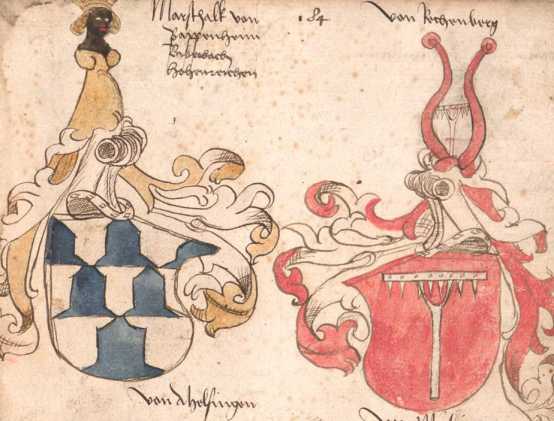 Marsthalk von
Pappenheim
Biberbach
Hohenreichen
184
von Rechenberg
von Ahelfingen
von